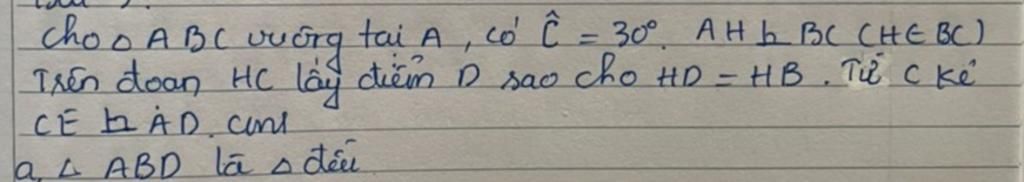 cho △ ABC vuông tại A, có Ĉ = 30°. AH ⊥ BC (H ∈ BC)
Trên đoạn HC lấy điểm D sao cho HD = HB. Từ C kẻ
CE ⊥ AD. CM
a, △ ABD là △ đều